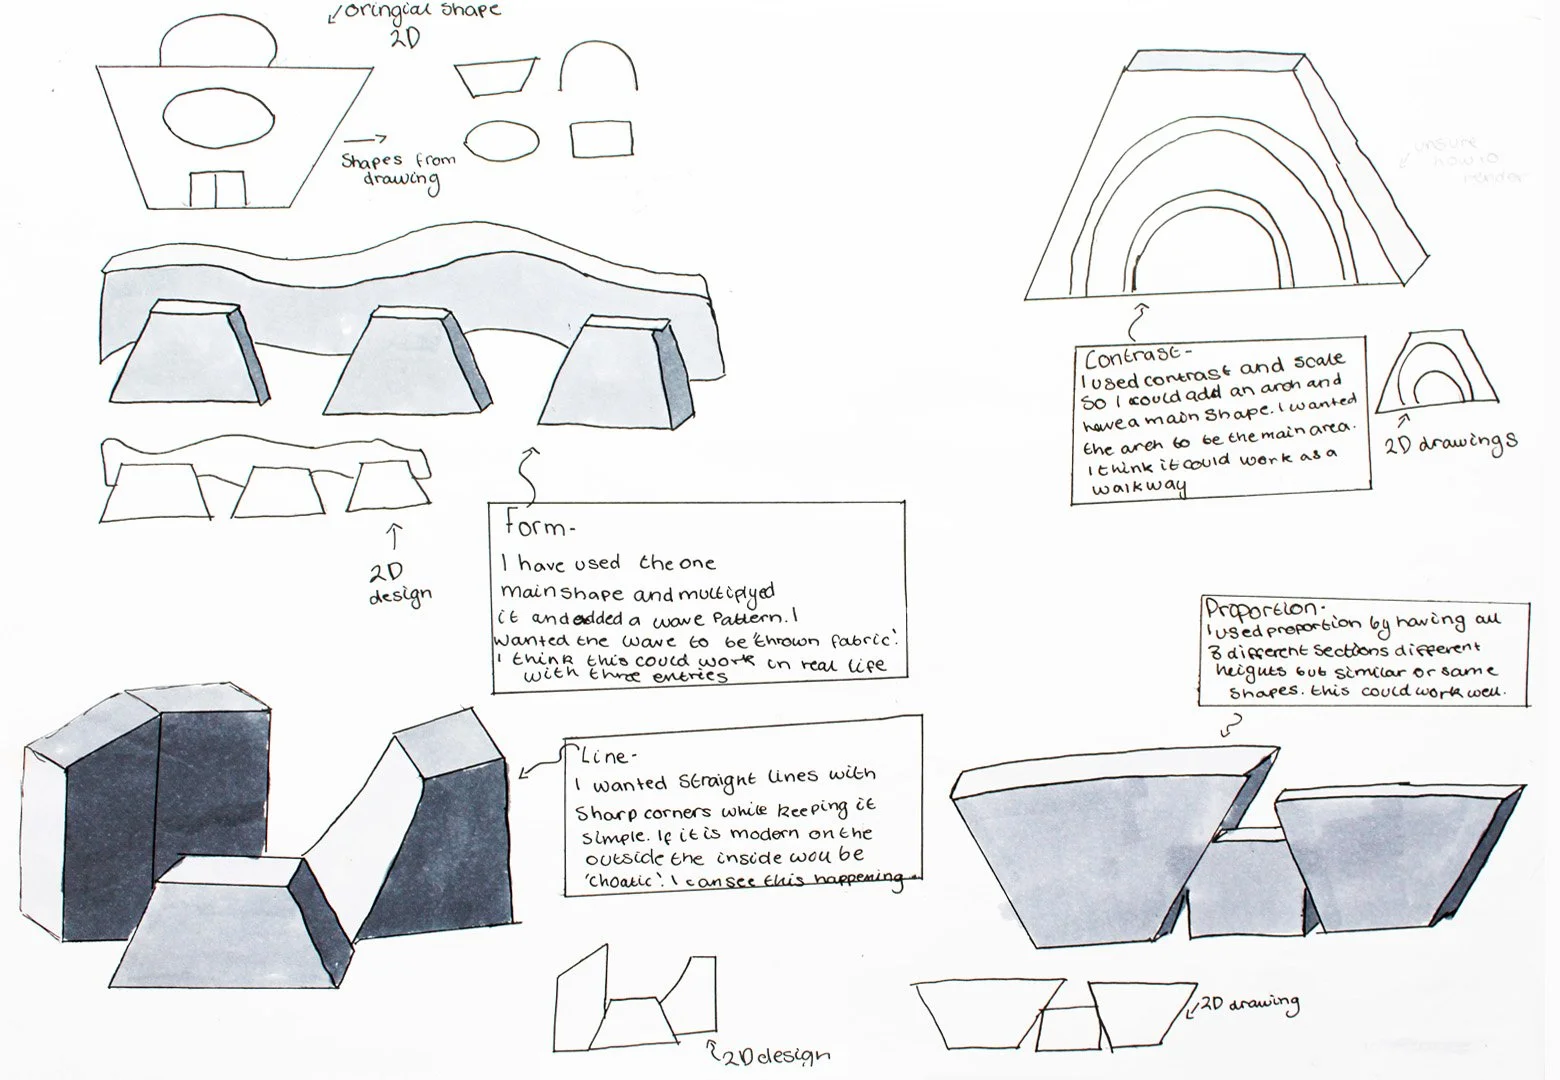 Oringial shape
2D
Shapes from
drawing
unsure
how to
render
Contrast-
I used contrast and scale
so I could add an arch and
have a main shape. I wanted
the arch to be the main area.
I think it could work as a
walkway
2D drawings
2D
design
Form-
I have used the one
main shape and multiplyed
it and added a wave pattern. I
wanted the wave to be 'thrown fabric'.
I think this could work in real life
with three entries
Proportion-
I used proportion by having all
3 different sections different
heights but similar or same
shapes. this could work well.
Line-
I wanted straight lines with
sharp corners while keeping it
simple. If it is modern on the
outside the inside wou be
'choatic'. I can see this happening
2D design
2D drawing